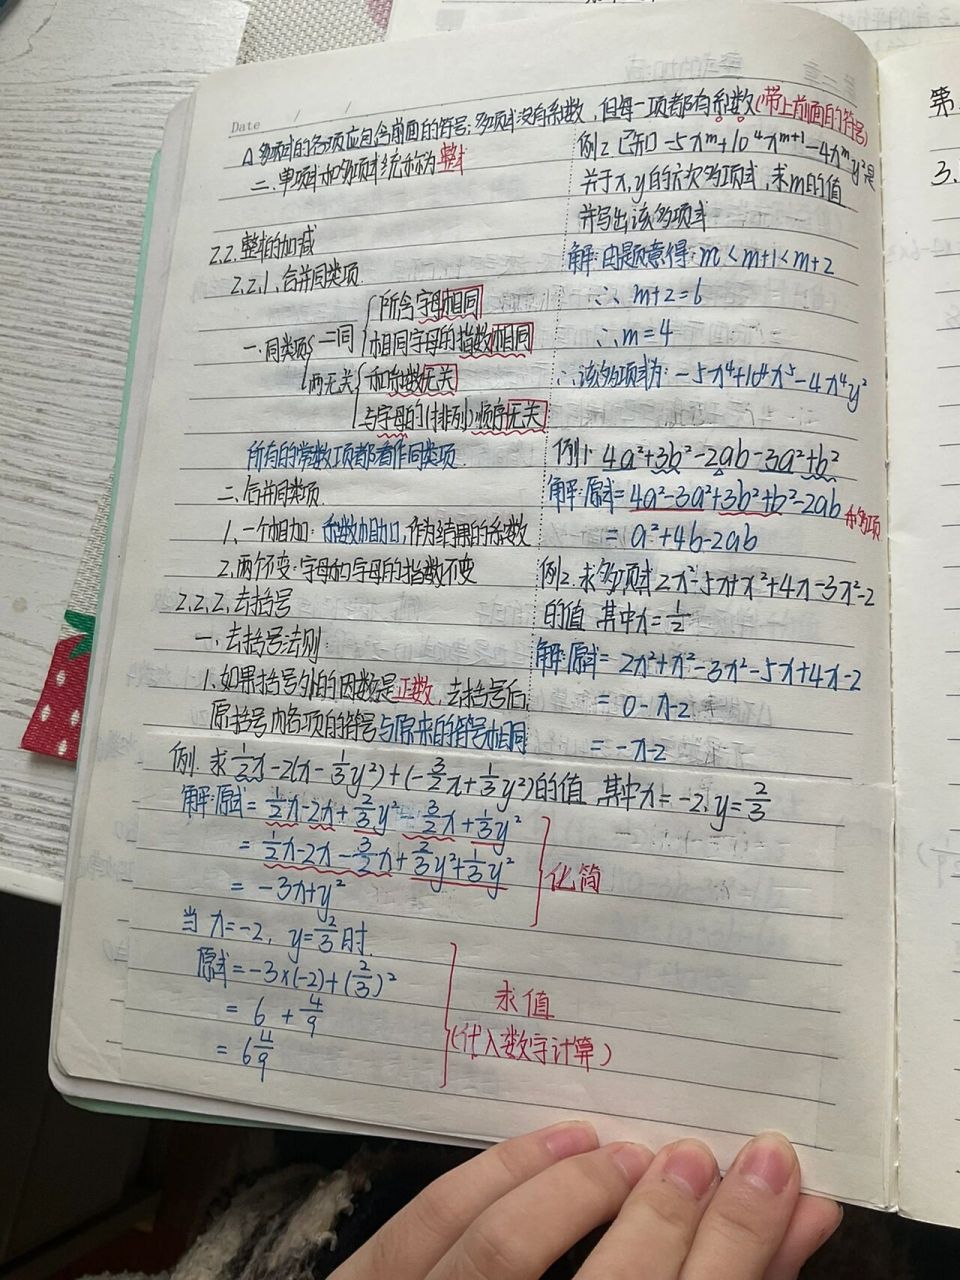 Date / /
△ 多项式的各项应包含前面的符号;多项式没有系数,但每一项都有系数(带上前面的符号)
二、单项式和多项式统称为整式
2.2.整式的加减
2.2.1.合并同类项
一.同类项 二同 所含字母相同
相同字母的指数相同
两无关 和系数无关
与字母的(排列)顺序无关
所有的常数项都看作同类项
二.合并同类项
1.一个相加:系数相加,作为结果的系数
2.两个不变:字母和字母的指数不变
2.2.2.去括号
一.去括号法则:
1.如果括号外的因数是正数,去括号后
原括号内各项的符号与原来的符号相同
例2.已知-5x^m+10^4x^{m+1}-4x^my^2是
关于x,y的六次多项式,求m的值
并写出该多项式
解:由题意得:m<m+1<m+2
∴ m+2=6
∴m=4
∴该多项式为:-5x^4+10^4x^5-4x^4y^2
例1:4a²+3b²-2ab-3a²+b²
解:原式=4a²-3a²+3b²+b²-2ab 移项
=a²+4b-2ab
例2.求多项式2x²-5x+x²+4x-3x²-2
的值 其中x=1/2
解:原式=2x²+x²-3x²-5x+4x-2
=0-x-2
=-x-2
例.求1/2x-2(x-1/3y²)+(-3/2x+1/3y²)的值 其中x=-2.y=2/3
解:原式=1/2x-2x+2/3y²-3/2x+1/3y²
=1/2x-2x-3/2x+2/3y²+1/3y²
=-3x+y²
化简
当x=-2, y=2/3时.
原式=-3×(-2)+(2/3)²
=6+4/9
=6 4/9
求值
(代入数字计算)
第
3.